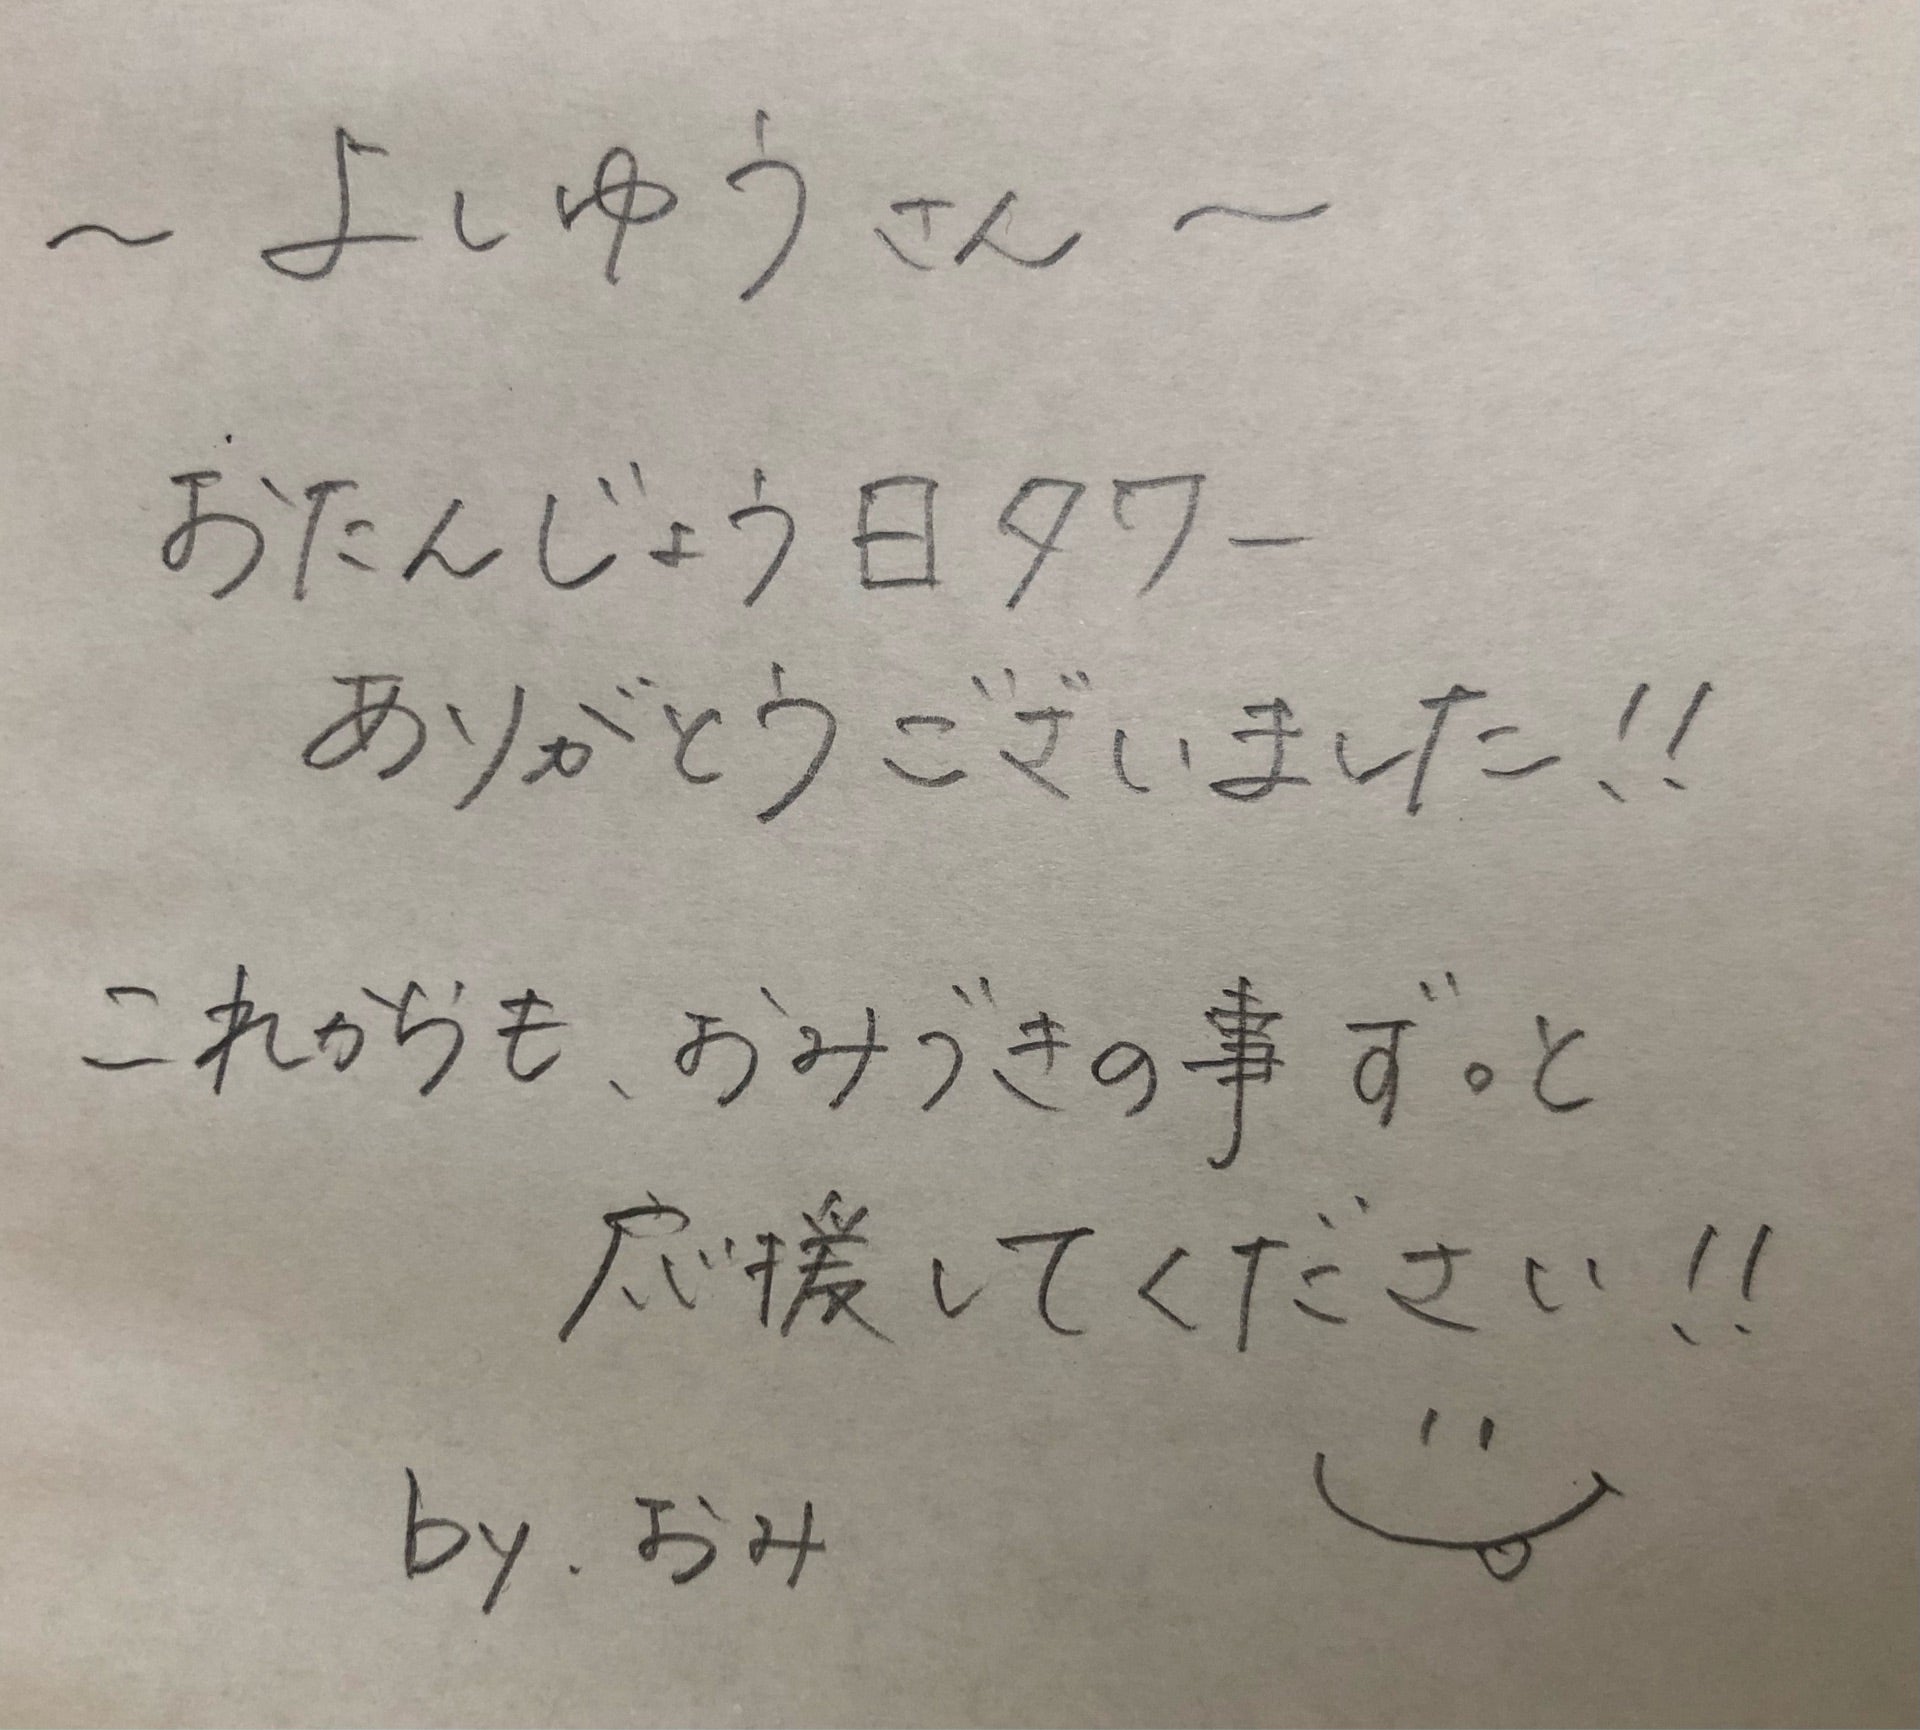 ～よしゆうさん～
おたんじょう日タワー
ありがとうございました!!
これからも、おみづきの事ずっと
応援してください!!
by.おみ